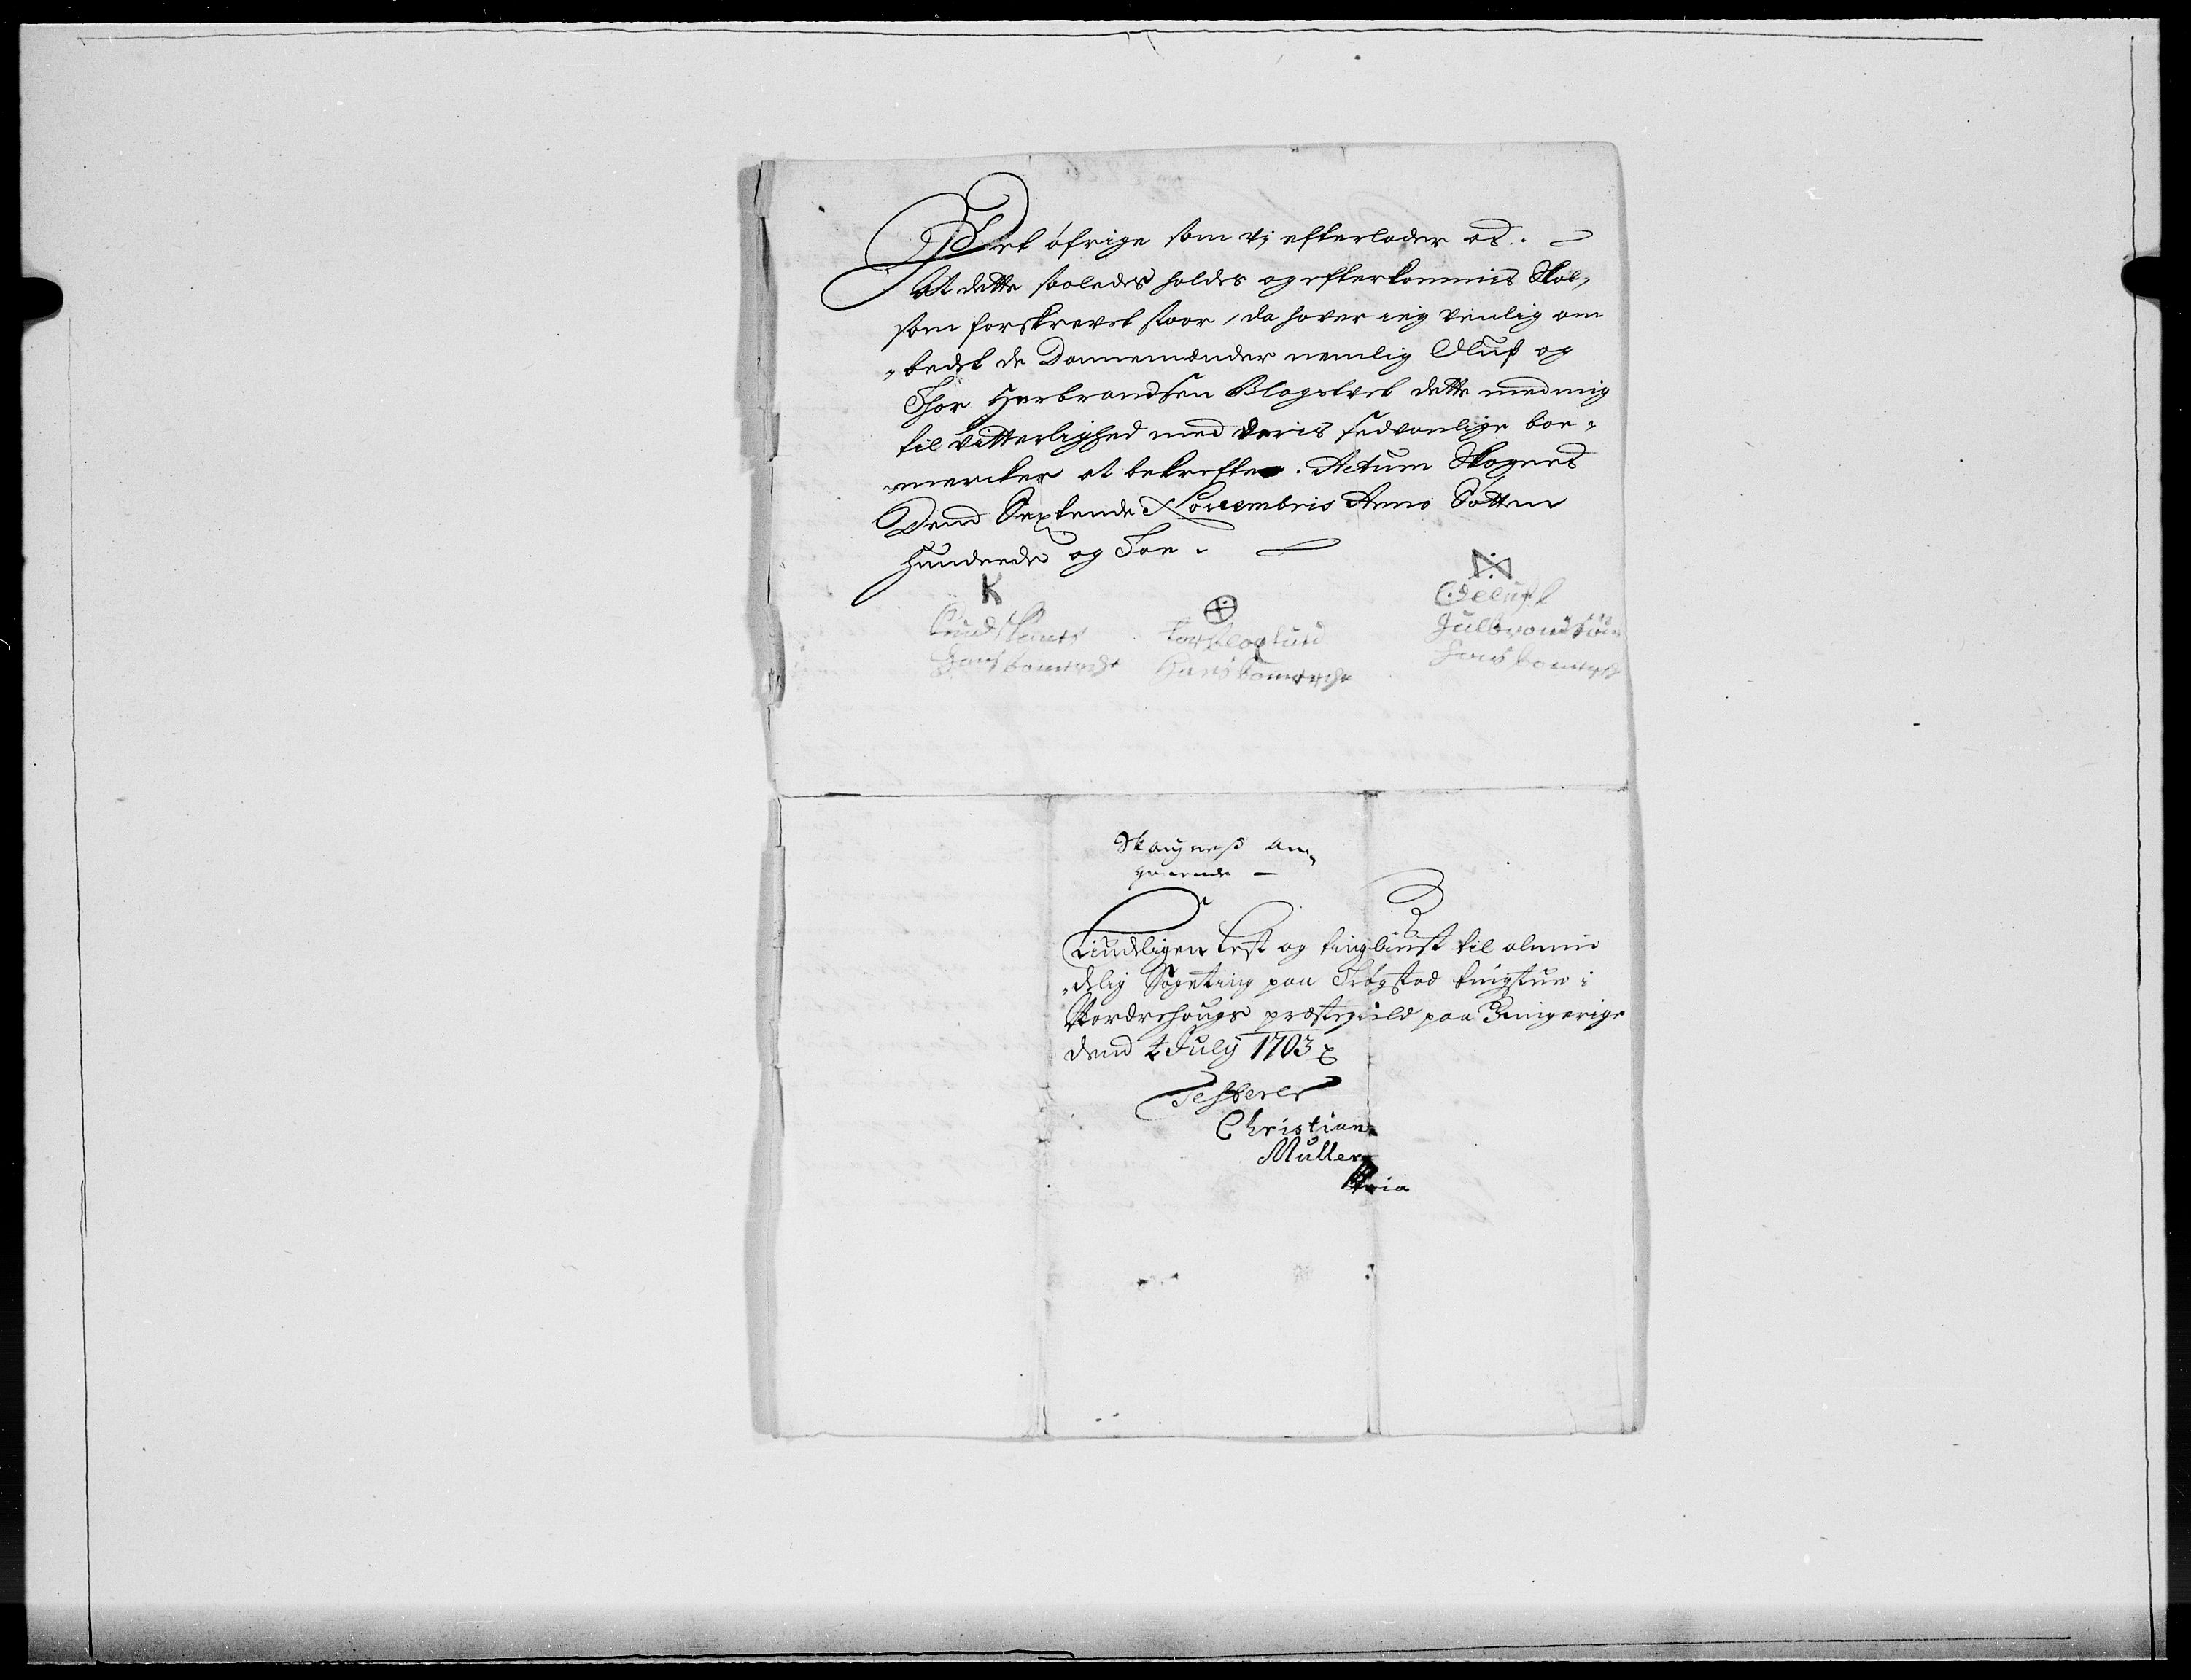 Det øfrige som vj efterlader os.
At dette saaledes holdes og efterkommis Skal,
som forskrevet staar, da haver ieg venlig om
bedet de Dannemænder nemlig Oluf og
Thor Herbrandsen Blagstvet dette med mig
til vitterlighed med deris sedvanlige boe-
mercker at bekrefte. Actum Skognes
Dend Sextende Novembris Anno Sötten
hundrede og Toe.
K
Knud Skanes
Hans bomerche
Tor Blagstuid
Hans bomerche
Oeluf
Gulbrandsön
Hans bomerche
Skaugness an-
gaaende
Tiudeligen Lest og tingliust til almin
delig Sageting paa Trögstad tingstue i
Nordrehougs prestegield paa Ringerige
dend 2 July 1703
Testerer
Christian
Müller
Mria